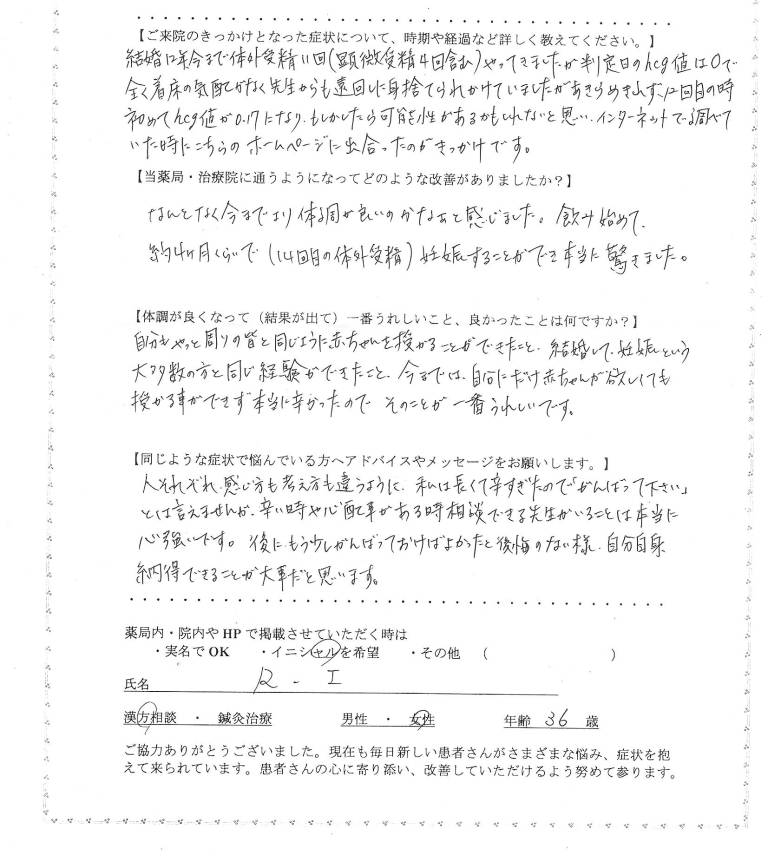 【ご来院のきっかけとなった症状について、時期や経過など詳しく教えてください。】
結婚12年今まで体外受精11回(顕微受精4回含む)やってきましたが判定日のhcg値は0で
全く着床の気配がなく先生からも遠回しに見捨てられかけていましたがあきらめきれず、12回目の時
初めてhcg値が0.17になり、もしかしたら可能性があるかもしれないと思い、インターネットで調べて
いた時にこちらのホームページに出会ったのがきっかけです。
【当薬局・治療院に通うようになってどのような改善がありましたか?】
なんとなく今までより体調が良いのかなぁと感じました。飲み始めて、
約4ヶ月くらいで(14回目の体外受精)妊娠することができ本当に驚きました。
【体調が良くなって(結果が出て)一番うれしいこと、良かったことは何ですか?】
自分もやっと周りの皆と同じように赤ちゃんを授かることができたこと、結婚して、妊娠という
大多数の方と同じ経験ができたこと、今までは、自分にだけ赤ちゃんが欲しくても
授かる事ができず本当に辛かったので そのことが一番うれしいです。
【同じような症状で悩んでいる方へアドバイスやメッセージをお願いします。】
人それぞれ、感じ方も考え方も違うように、私は長くて辛すぎたので「がんばって下さい」
とは言えませんが、辛い時や心配事がある時相談できる先生がいることは本当に
心強いです。後に、もう少しがんばっておけばよかったと後悔のない様、自分自身
納得できることが大事だと思います。
薬局内・院内やHPで掲載させていただく時は
・実名でOK ・イニシャルを希望 ・その他 ( )
氏名 R - I
漢方相談 ・ 鍼灸治療 男性 ・ 女性 年齢 36 歳
ご協力ありがとうございました。現在も毎日新しい患者さんがさまざまな悩み、症状を抱
えて来られています。患者さんの心に寄り添い、改善していただけるよう努めて参ります。